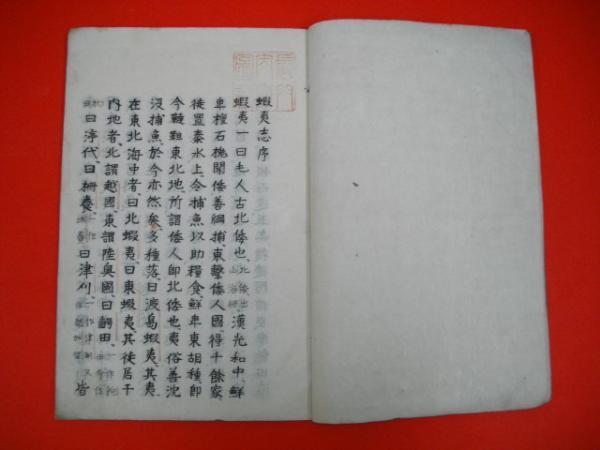 蝦夷志序
蝦夷一曰毛人古北倭也北倭出山海經漢光和中鮮
卑檀石槐聞倭善網捕東擊倭人國得千餘家
徙置秦水上令捕魚以助糧食鮮卑東胡種即
今韃靼東北地所謂倭人即北倭也夷俗善沈
沒捕魚於今亦然矣多種落曰渡島蝦夷其夷
在東北海中者曰北蝦夷曰東蝦夷其徒居于
內地者北謂越國東謂陸奧國曰齶田
曰渟代曰柵養曰津刈皆